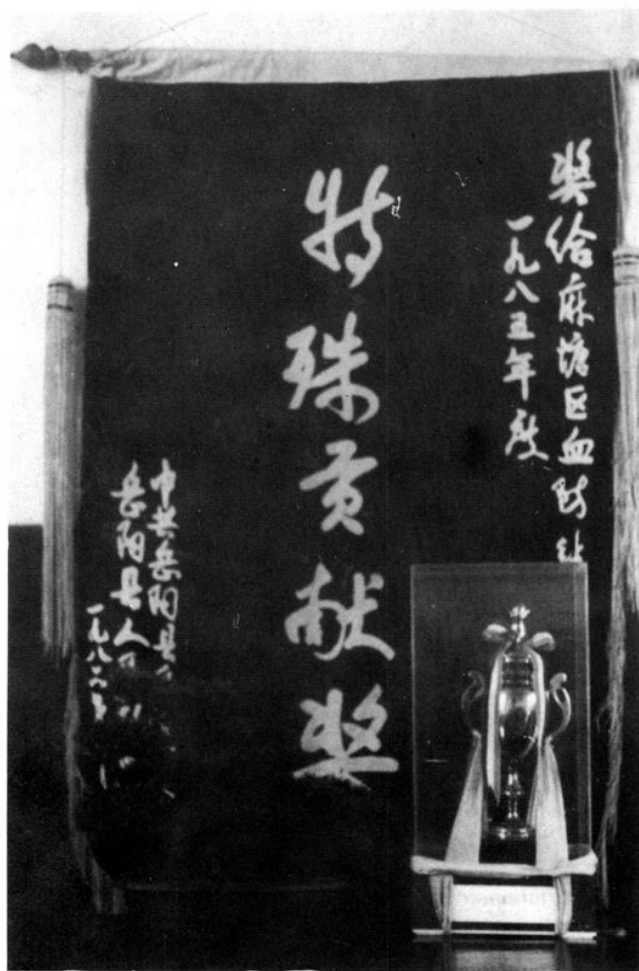 奖给麻塘区血防站
一九八五年度
特殊贡献奖
中共岳阳县
岳阳县人民
一九八六年